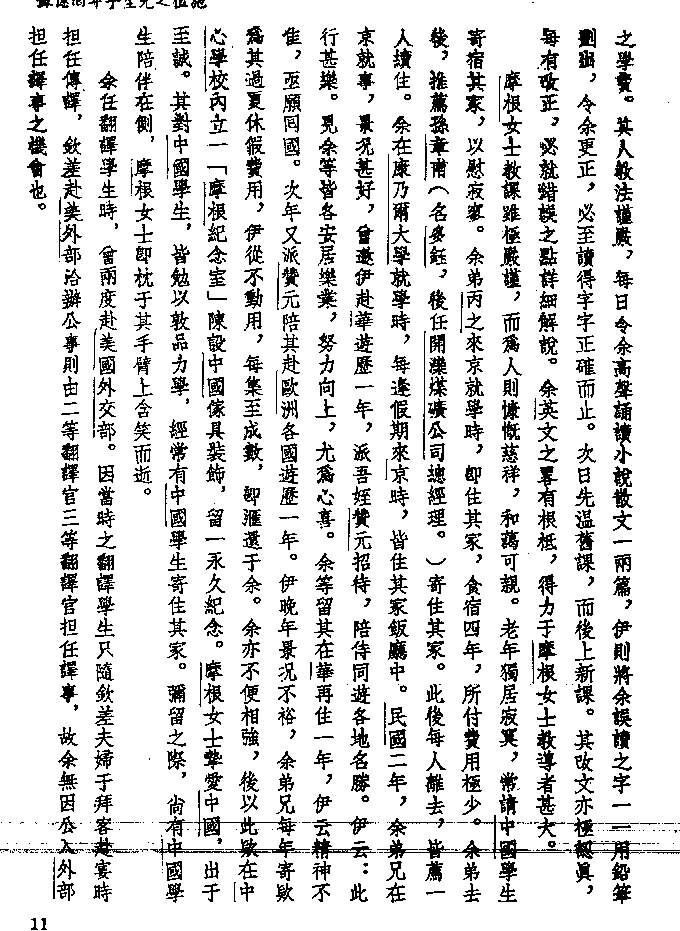 之學費。其人敎法謹嚴，每日令余高聲誦讀小說散文一兩篇，伊則將余誤讀之字一一用鉛筆
劃出，令余更正，必至讀得字字正確而止。次日先溫舊課，而後上新課。其改文亦極認眞，
每有改正，必就錯誤之點詳細解說。余英文之畧有根柢，得力于摩根女士敎導者甚大。
摩根女士敎課雖極嚴謹，而爲人則慷慨慈祥，和藹可親。老年獨居寂寞，常請中國學生
寄宿其家，以慰寂寥。余弟丙之來京就學時，卽住其家，食宿四年，所付費用極少。余弟去
後，推薦孫章甫（名多鈺，後任開灤煤礦公司總經理。）寄住其家。此後每人離去，皆薦一
人續住。余在康乃爾大學就學時，每逢假期來京時，皆住其家飯廳中。民國二年，余弟兄在
京就事，景況甚好，曾邀伊赴華遊歷一年，派吾姪贊元招待，陪侍同遊各地名勝。伊云：此
行甚樂。見余等皆各安居樂業，努力向上，尤爲心喜。余等留其在華再住一年，伊云精神不
佳，亟願囘國。次年又派贊元陪其赴歐洲各國遊歷一年。伊晚年景況不裕，余弟兄每年寄欵
爲其過夏休假費用，伊從不動用，每集至成數，卽滙還于余。余亦不便相強，後以此欵在中
心學校內立一「摩根紀念室」陳設中國傢具裝飾，留一永久紀念。摩根女士摯愛中國，出于
至誠。其對中國學生，皆勉以敦品力學，經常有中國學生寄住其家。彌留之際，尚有中國學
生陪伴在側，摩根女士卽枕于其手臂上含笑而逝。
余任翻譯學生時，曾兩度赴美國外交部。因當時之翻譯學生只隨欽差夫婦于拜客赴宴時
担任傳譯，欽差赴美外部洽辦公事則由二等翻譯官三等翻譯官担任譯事，故余無因公入外部
担任譯事之機會也。
11